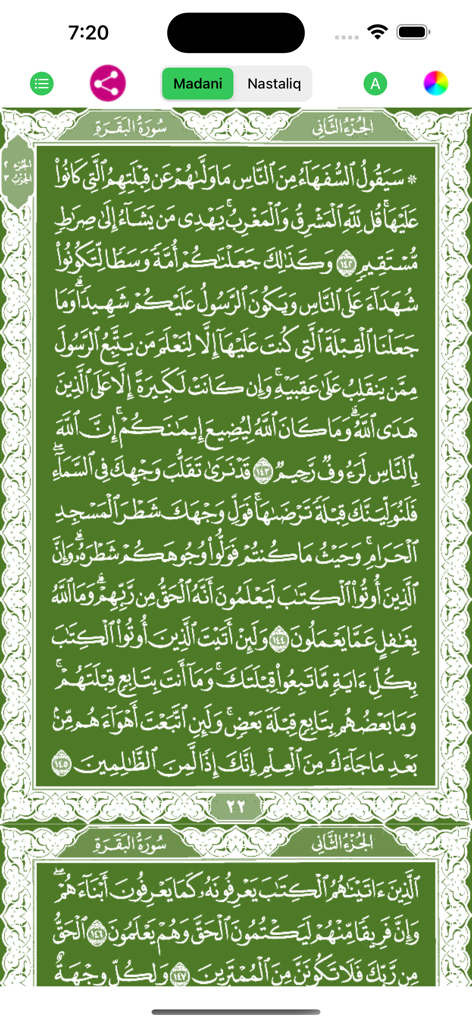 7:20
Madani
Nastaliq
A
الجُزْءُ الثَّانِي
سُورَةُ البَقَرَةِ
الجزء ٢
الحزب ٣
۞ سَيَقُولُ ٱلسُّفَهَآءُ مِنَ ٱلنَّاسِ مَا وَلَّىٰهُمْ عَن قِبْلَتِهِمُ ٱلَّتِى كَانُوا۟
عَلَيْهَا ۚ قُل لِّلَّهِ ٱلْمَشْرِقُ وَٱلْمَغْرِبُ ۚ يَهْدِى مَن يَشَآءُ إِلَىٰ صِرَٰطٍ
مُّسْتَقِيمٍ ١٤٢ وَكَذَٰلِكَ جَعَلْنَٰكُمْ أُمَّةً وَسَطًا لِّتَكُونُوا۟
شُهَدَآءَ عَلَى ٱلنَّاسِ وَيَكُونَ ٱلرَّسُولُ عَلَيْكُمْ شَهِيدًا ۗ وَمَا
جَعَلْنَا ٱلْقِبْلَةَ ٱلَّتِى كُنتَ عَلَيْهَآ إِلَّا لِنَعْلَمَ مَن يَتَّبِعُ ٱلرَّسُولَ
مِمَّن يَنقَلِبُ عَلَىٰ عَقِبَيْهِ ۚ وَإِن كَانَتْ لَكَبِيرَةً إِلَّا عَلَى ٱلَّذِينَ
هَدَى ٱللَّهُ ۗ وَمَا كَانَ ٱللَّهُ لِيُضِيعَ إِيمَٰنَكُمْ ۚ إِنَّ ٱللَّهَ
بِٱلنَّاسِ لَرَءُوفٌ رَّحِيمٌ ١٤٣ قَدْ نَرَىٰ تَقَلُّبَ وَجْهِكَ فِى ٱلسَّمَآءِ ۖ
فَلَنُوَلِّيَنَّكَ قِبْلَةً تَرْضَىٰهَا ۚ فَوَلِّ وَجْهَكَ شَطْرَ ٱلْمَسْجِدِ
ٱلْحَرَامِ ۚ وَحَيْثُ مَا كُنتُمْ فَوَلُّوا۟ وُجُوهَكُمْ شَطْرَهُۥ ۗ وَإِنَّ
ٱلَّذِينَ أُوتُوا۟ ٱلْكِتَٰبَ لَيَعْلَمُونَ أَنَّهُ ٱلْحَقُّ مِن رَّبِّهِمْ ۗ وَمَا ٱللَّهُ
بِغَٰفِلٍ عَمَّا يَعْمَلُونَ ١٤٤ وَلَئِنْ أَتَيْتَ ٱلَّذِينَ أُوتُوا۟ ٱلْكِتَٰبَ
بِكُلِّ ءَايَةٍ مَّا تَبِعُوا۟ قِبْلَتَكَ ۚ وَمَآ أَنتَ بِتَابِعٍ قِبْلَتَهُمْ ۚ
وَمَا بَعْضُهُم بِتَابِعٍ قِبْلَةَ بَعْضٍ ۚ وَلَئِنِ ٱتَّبَعْتَ أَهْوَآءَهُم مِّنۢ
بَعْدِ مَا جَآءَكَ مِنَ ٱلْعِلْمِ ۙ إِنَّكَ إِذًا لَّمِنَ ٱلظَّٰلِمِينَ ١٤٥
٢٢
الجُزْءُ الثَّانِي
سُورَةُ البَقَرَةِ
ٱلَّذِينَ ءَاتَيْنَٰهُمُ ٱلْكِتَٰبَ يَعْرِفُونَهُۥ كَمَا يَعْرِفُونَ أَبْنَآءَهُمْ ۖ
وَإِنَّ فَرِيقًا مِّنْهُمْ لَيَكْتُمُونَ ٱلْحَقَّ وَهُمْ يَعْلَمُونَ ١٤٦ ٱلْحَقُّ
مِن رَّبِّكَ فَلَا تَكُونَنَّ مِنَ ٱلْمُمْتَرِينَ ١٤٧ وَلِكُلٍّ وِجْهَةٌ